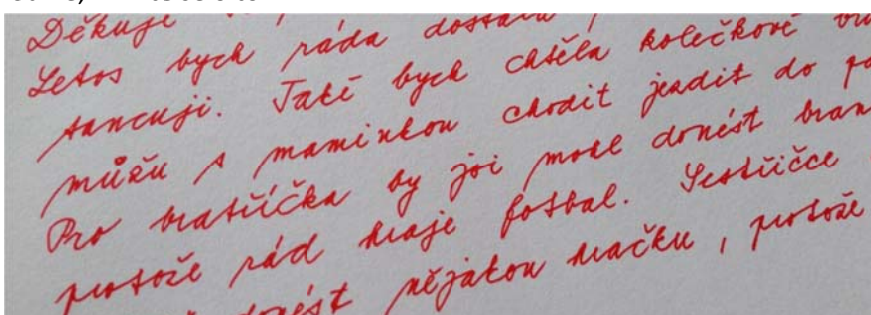 Děkuji
Letos bych ráda dostala
tancuji. Také bych chtěla kolečkové
můžu s maminkou chodit jezdit do
Pro bratříčka by jsi mohl donést
protože rád hraje fotbal. Sestřičce
donést nějakou hračku, protože